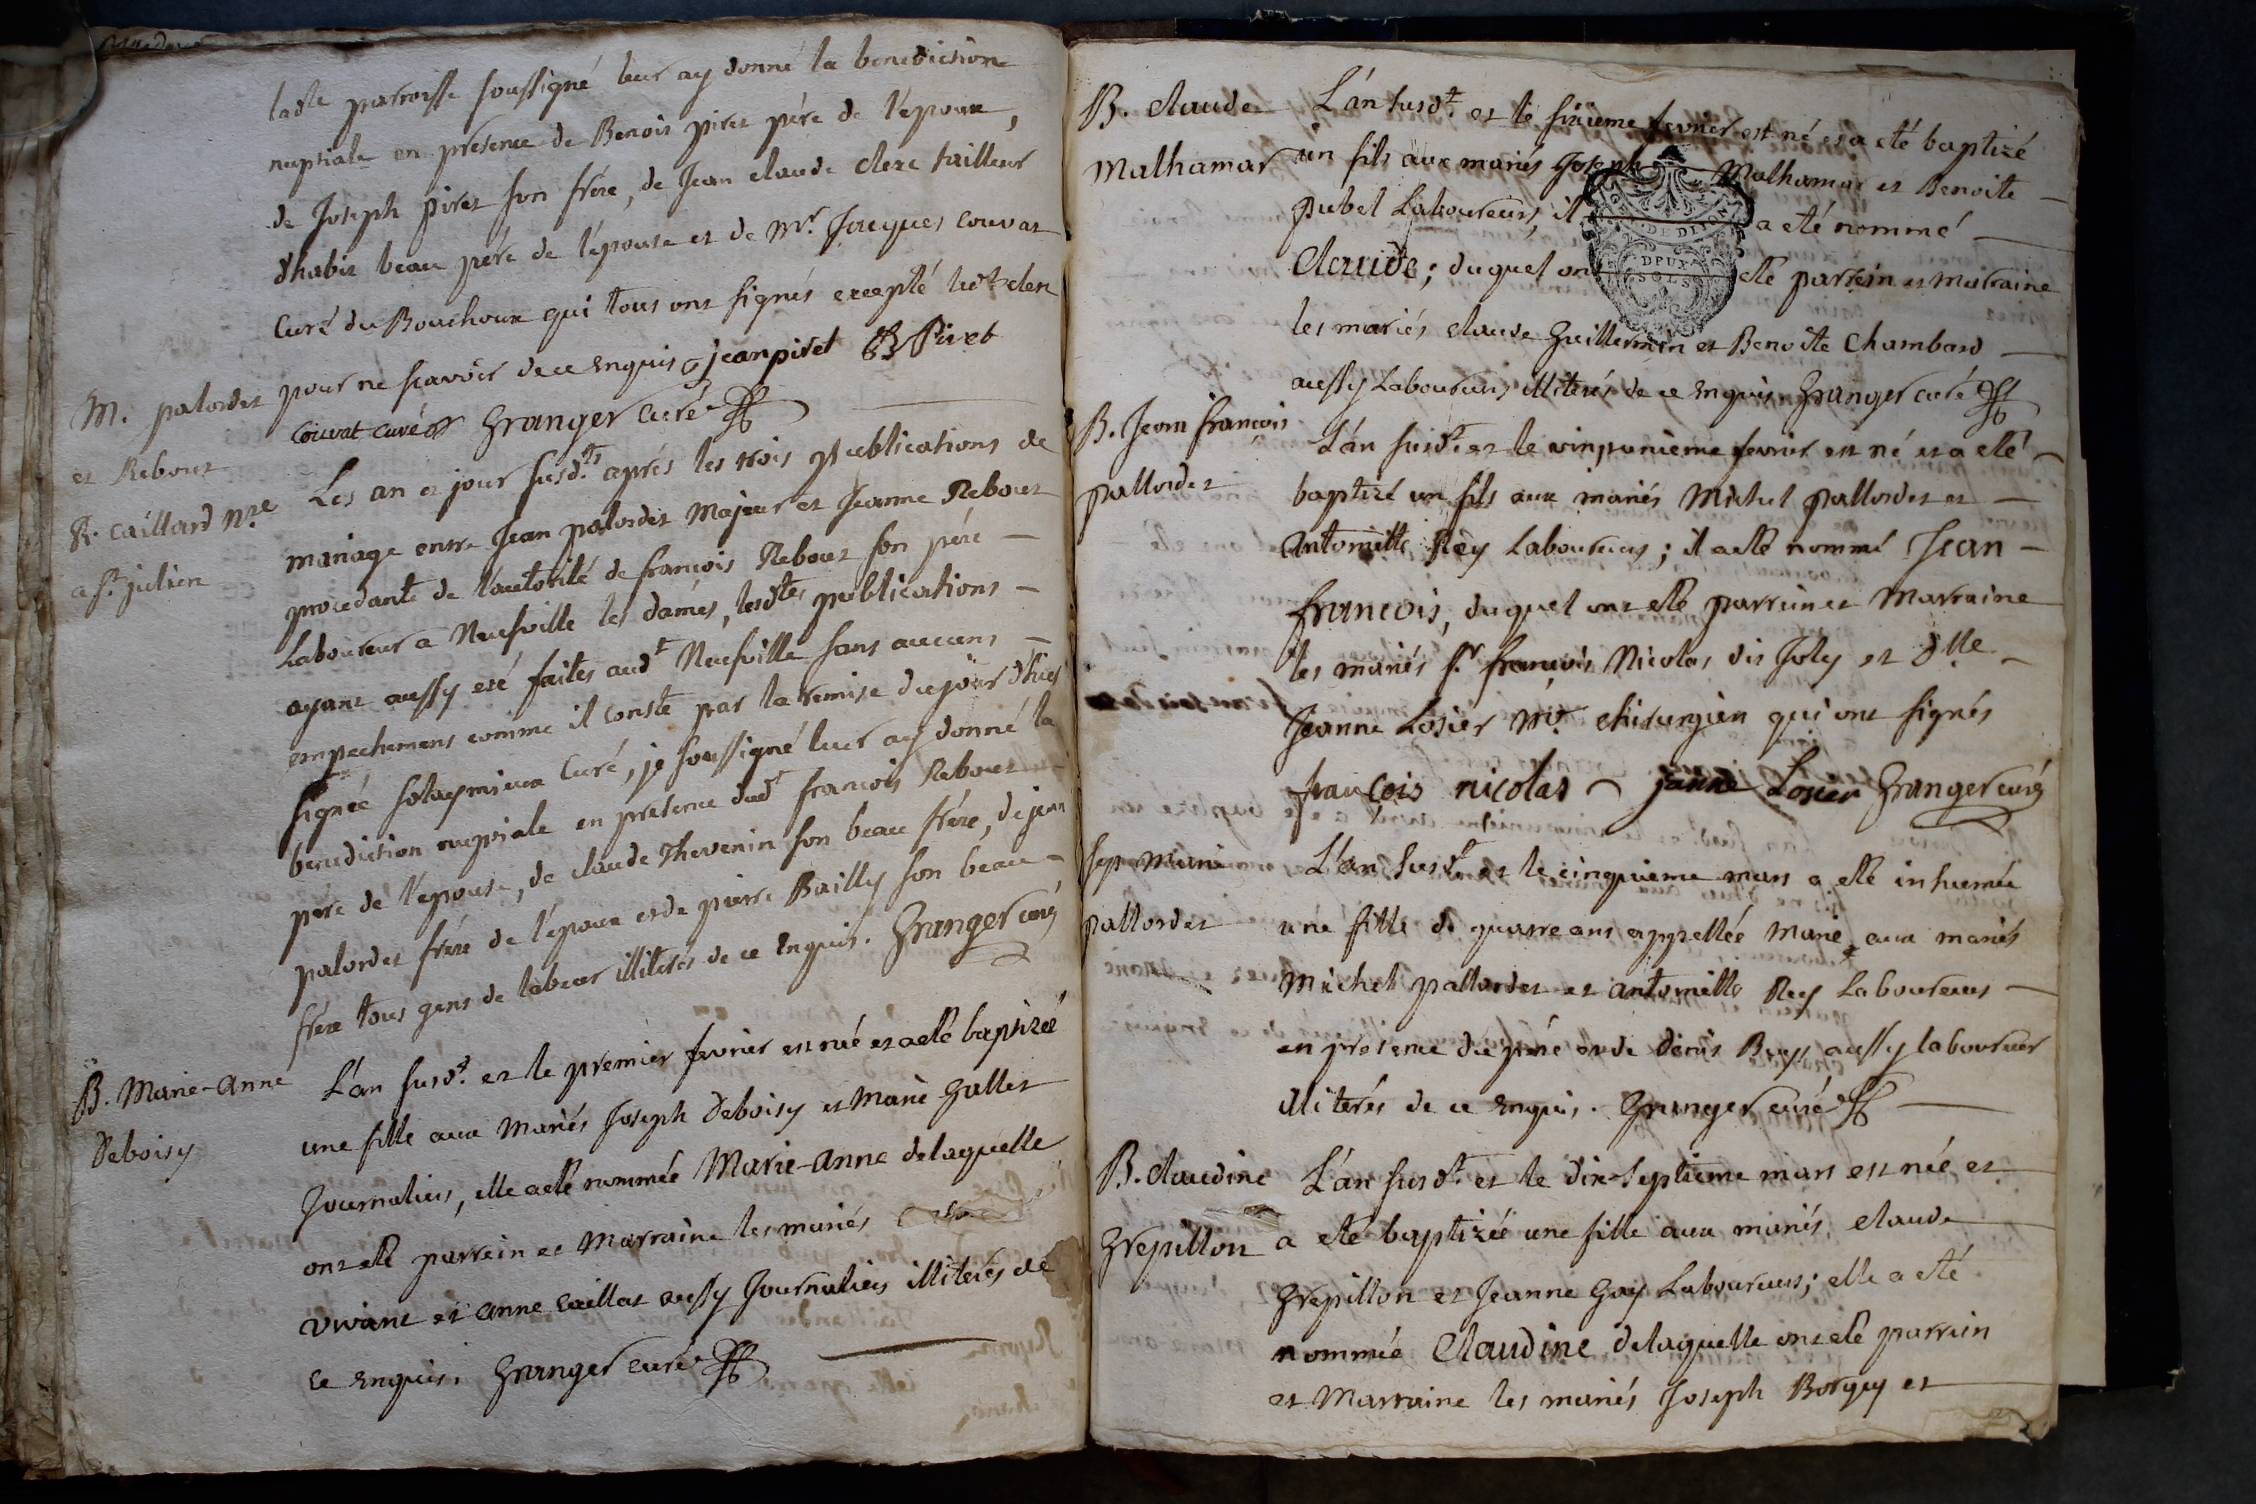 ladte parroisse soussigné leur ay donné la benediction
nuptiale en présence de Benoit piret pére de l'epoux,
de Joseph piret son frére, de Jean claude clerc tailleur
d'habit beau pére de l'épouse et de Mr. Jacques couvat
Curé du Bouchoux qui tous ont signés excepté ledt. clerc
pour ne scavoir de ce enquis jean piret B Piret
couvat curé Granger curé
M. palordet
et Rebout
R. caillard nre
a st. julien
Les an et jour susdts. aprés les trois publications de
mariage entre Jean palordet Majeur et Jeanne Rebout
procedante de l'autorité de francois Rebout son pére —
Laboureur a Neufville les dames, lesdtes publications —
ayant aussy eté faites audt Neufville sans aucuns —
empechemens comme il conste par la remise du jour d'hier
signée Curé, je soussigné leur ay donné la
benediction nuptiale en presence dudt francois Rebout
pere de l'epouse, de claude Thevenin son beau frére, de jean
palordet frére de l'époux et de pierre Bailly son beau —
frére tous gens de labeur illiterés de ce enquis. Granger curé
B. Marie-anne
Deboisy
L'an susdt. et le premier fevrier est née et a eté baptizée
une fille aux Mariés Joseph Deboisy et Marie Gallet
Journaliers, elle a eté nommée Marie-anne de laquelle
ont eté parrein et Marraine les mariés
vivant et anne caillat aussy Journaliers illiterés de
ce enquis. Granger curé
B. claude
Malhamar
L'an susdt. et le sixieme fevrier est né et a eté baptizé
un fils aux mariés Joseph Malhamar et Benoite —
pubel Laboureurs, il a eté nommé —
Claude; duquel ont eté parrein et marraine
les mariés claude Guillermin et Benoite Chambard —
aussy Laboureurs illiterés de ce enquis Granger curé
GEN. DE DIJON
DEUX
SOLS
B. Jean francois
pallordet
L'an susdt. et le vingtunième fevrier est né et a eté —
baptizé un fils aux mariés Michel pallordet et —
Antoinette Rey Laboureurs; il a eté nommé Jean —
francois, duquel ont eté parrein et Marraine
les mariés sr. francois Nicolas dit Joly et dlle. —
Jeanne Losier Me. chirurgien qui ont signés
françois nicolas janne Losier Granger curé
sep. Marie
pallordet
L'an susdt. et le cinquieme mars a eté inhumée
une fille de quatre ans appellée Marie, aux mariés
Michel pallordet et antoinette Rey Laboureurs —
en presence du pére et de denis Rey, aussy laboureur
illiterés de ce enquis. Granger curé —
B. claudine
Grepillon
L'an susdt. et le dix-septieme mars est née et
a eté baptizée une fille aux mariés claude
Grepillon et Jeanne Gay Laboureurs; elle a eté
nommée Claudine de laquelle ont eté parrein
et Marraine les mariés Joseph Borgey et